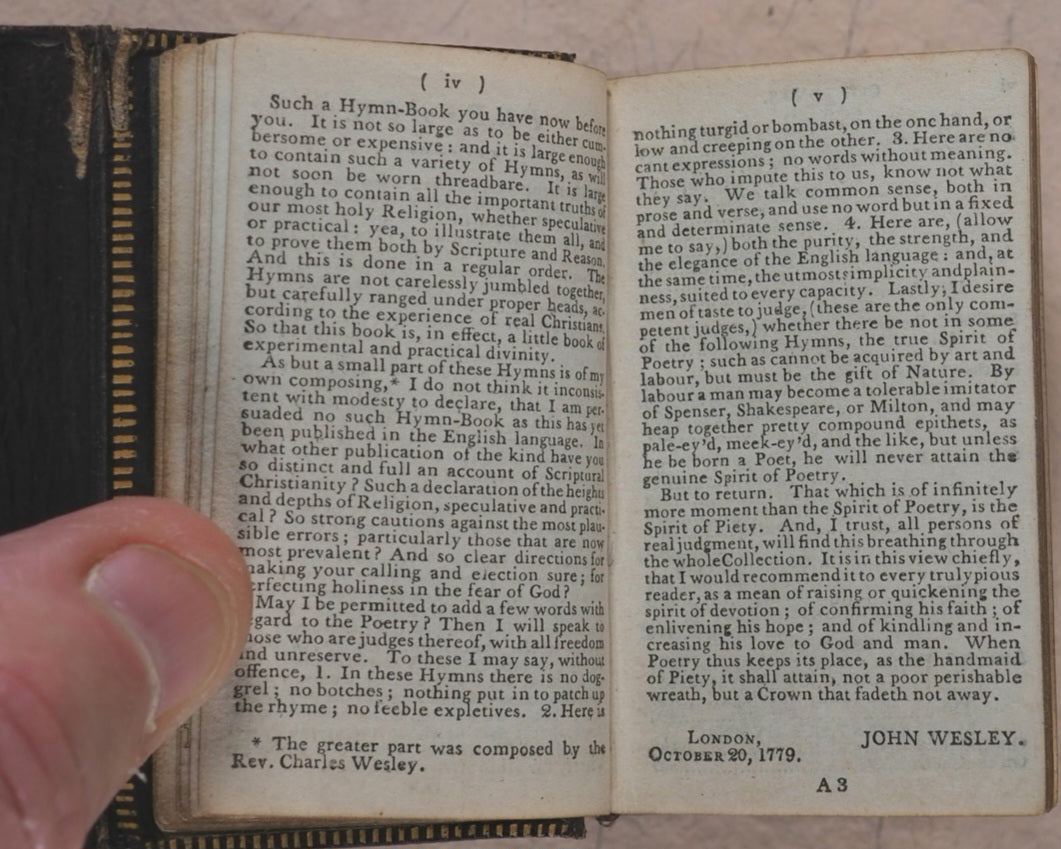 ( iv )
Such a Hymn-Book you have now before
you. It is not so large as to be either cum-
bersome or expensive : and it is large enough
to contain such a variety of Hymns, as will
not soon be worn threadbare. It is large
enough to contain all the important truths of
our most holy Religion, whether speculative
or practical : yea, to illustrate them all, and
to prove them both by Scripture and Reason.
And this is done in a regular order. The
Hymns are not carelessly jumbled together,
but carefully ranged under proper heads, ac-
cording to the experience of real Christians.
So that this book is, in effect, a little book of
experimental and practical divinity.
As but a small part of these Hymns is of my
own composing,* I do not think it inconsis-
tent with modesty to declare, that I am per-
suaded no such Hymn-Book as this has yet
been published in the English language. In
what other publication of the kind have you
so distinct and full an account of Scriptural
Christianity ? Such a declaration of the heights
and depths of Religion, speculative and practi-
cal ? So strong cautions against the most plau-
sible errors ; particularly those that are now
most prevalent ? And so clear directions for
making your calling and election sure ; for
erfecting holiness in the fear of God ?
May I be permitted to add a few words with
gard to the Poetry ? Then I will speak to
hose who are judges thereof, with all freedom
and unreserve. To these I may say, without
offence, 1. In these Hymns there is no dog-
grel ; no botches ; nothing put in to patch up
the rhyme ; no feeble expletives. 2. Here is
* The greater part was composed by the
Rev. Charles Wesley.
( v )
nothing turgid or bombast, on the one hand, or
low and creeping on the other. 3. Here are no
cant expressions ; no words without meaning.
Those who impute this to us, know not what
they say. We talk common sense, both in
prose and verse, and use no word but in a fixed
and determinate sense. 4. Here are, (allow
me to say,) both the purity, the strength, and
the elegance of the English language : and, at
the same time, the utmost simplicity and plain-
ness, suited to every capacity. Lastly, I desire
men of taste to judge, (these are the only com-
petent judges,) whether there be not in some
of the following Hymns, the true Spirit of
Poetry ; such as cannot be acquired by art and
labour, but must be the gift of Nature. By
labour a man may become a tolerable imitator
of Spenser, Shakespeare, or Milton, and may
heap together pretty compound epithets, as
pale-ey'd, meek-ey'd, and the like, but unless
he be born a Poet, he will never attain the
genuine Spirit of Poetry.
But to return. That which is of infinitely
more moment than the Spirit of Poetry, is the
Spirit of Piety. And, I trust, all persons of
real judgment, will find this breathing through
the whole Collection. It is in this view chiefly,
that I would recommend it to every truly pious
reader, as a mean of raising or quickening the
spirit of devotion ; of confirming his faith ; of
enlivening his hope ; and of kindling and in-
creasing his love to God and man. When
Poetry thus keeps its place, as the handmaid
of Piety, it shall attain, not a poor perishable
wreath, but a Crown that fadeth not away.
JOHN WESLEY.
LONDON,
OCTOBER 20, 1779.
A 3